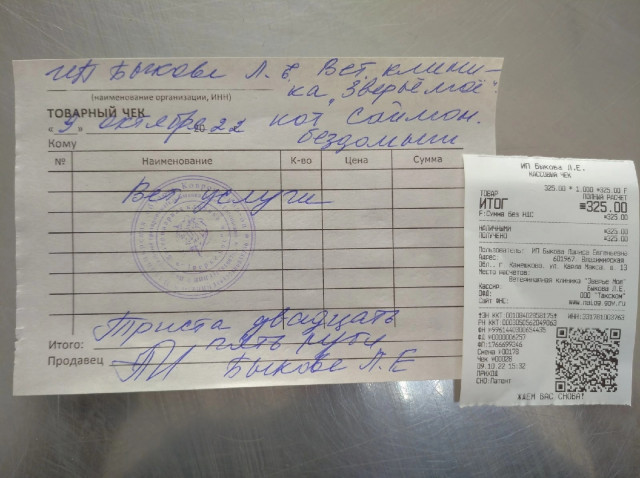 ИП Быкова Л. Е. Вет. клини-
ка "Зверьё моё"
(наименование организации, ИНН)
ТОВАРНЫЙ ЧЕК кот Саймон.
«9» октября 2022 бездомный
Кому
№ Наименование К-во Цена Сумма
Вет. услуги
Триста двадцать
Итого: пять руб
Продавец ИП Быкова Л. Е
ИП Быкова Л.Е.
КАССОВЫЙ ЧЕК
325.00 * 1.000 =325.00
ТОВАР ПОЛНЫЙ РАСЧЕТ
ИТОГ =325.00
Сумма без НДС =325.00
НАЛИЧНЫМИ =325.00
ПОЛУЧЕНО =325.00
Пользователь: ИП Быкова Лариса Евгеньевна
Адрес: 601967 Владимирская
Обл., г. Камешково, ул. Карла Маркса, д. 13
Место расчетов:
Ветеринарная клиника "Зверье Мое"
Кассир: Быкова Л.Е.
ОФД: ООО "Такском"
Сайт ФНС: www.nalog.gov.ru
Смена
Чек
09.10.22 15:32
ПРИХОД
СНО:Патент
ЖДЕМ ВАС СНОВА!